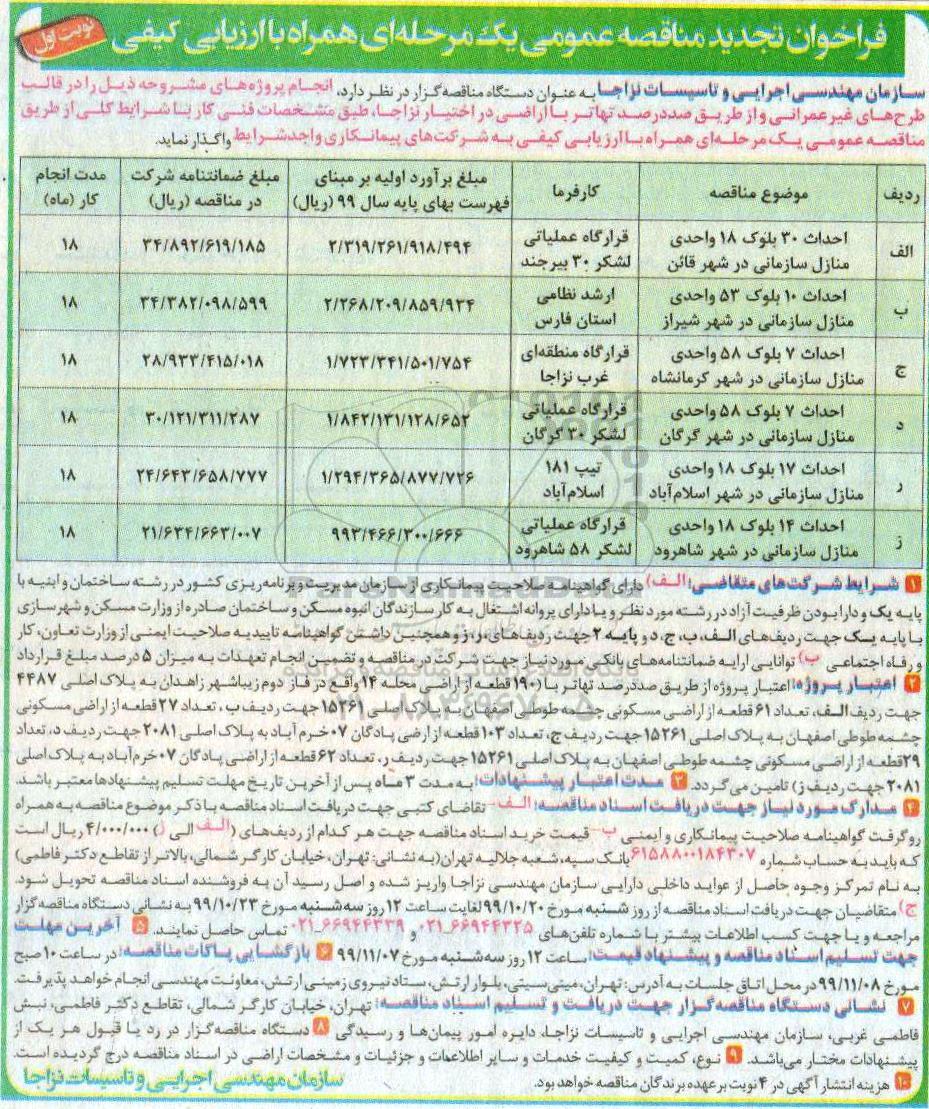 فراخوان تجدید مناقصه عمومی یک مرحله‌ای همراه با ارزیابی کیفی
نوبت اول
سازمان مهندسی اجرایی و تاسیسات نزاجا به عنوان دستگاه مناقصه‌گزار در نظر دارد، انجام پروژه‌های مشروحه ذیل را در قالب
طرح‌های غیر عمرانی و از طریق صددرصد تهاتر با اراضی در اختیار نزاجا، طبق مشخصات فنی کار با شرایط کلی از طریق
مناقصه عمومی یک مرحله‌ای همراه با ارزیابی کیفی به شرکت‌های پیمانکاری واجد شرایط واگذار نماید.
ردیف موضوع مناقصه کارفرما مبلغ برآورد اولیه بر مبنای فهرست بهای پایه سال ۹۹ (ریال) مبلغ ضمانتنامه شرکت در مناقصه (ریال) مدت انجام کار (ماه)
الف احداث ۳۰ بلوک ۱۸ واحدی منازل سازمانی در شهر قائن قرارگاه عملیاتی لشکر ۳۰ بیرجند ۲/۳۱۹/۲۶۱/۹۱۸/۴۹۴ ۳۴/۸۹۲/۶۱۹/۱۸۵ ۱۸
ب احداث ۱۰ بلوک ۵۳ واحدی منازل سازمانی در شهر شیراز ارشد نظامی استان فارس ۲/۲۶۸/۲۰۹/۸۵۹/۹۳۴ ۳۴/۳۸۲/۰۹۸/۵۹۹ ۱۸
ج احداث ۷ بلوک ۵۸ واحدی منازل سازمانی در شهر کرمانشاه قرارگاه منطقه‌ای غرب نزاجا ۱/۷۲۳/۳۴۱/۵۰۱/۷۵۴ ۲۸/۹۳۳/۴۱۵/۰۱۸ ۱۸
د احداث ۷ بلوک ۵۸ واحدی منازل سازمانی در شهر گرگان قرارگاه عملیاتی لشکر ۳۰ گرگان ۱/۸۴۲/۱۳۱/۱۲۸/۶۵۲ ۳۰/۱۲۱/۳۱۱/۲۸۷ ۱۸
ر احداث ۱۷ بلوک ۱۸ واحدی منازل سازمانی در شهر اسلام‌آباد تیپ ۱۸۱ اسلام‌آباد ۱/۲۹۴/۳۶۵/۸۷۷/۷۲۶ ۲۴/۶۴۳/۶۵۸/۷۷۷ ۱۸
ز احداث ۱۴ بلوک ۱۸ واحدی منازل سازمانی در شهر شاهرود قرارگاه عملیاتی لشکر ۵۸ شاهرود ۹۹۳/۴۶۶/۳۰۰/۶۶۶ ۲۱/۶۳۴/۶۶۳/۰۰۷ ۱۸
۱ شرایط شرکت‌های متقاضی: الف) دارای گواهینامه صلاحیت پیمانکاری از سازمان مدیریت و برنامه‌ریزی کشور در رشته ساختمان و ابنیه با
پایه یک و دارا بودن ظرفیت آزاد در رشته مورد نظر و یا دارای پروانه اشتغال به کار سازندگان انبوه مسکن و ساختمان صادره از وزارت مسکن و شهرسازی
با پایه یک جهت ردیف‌های الف، ب، ج، د و پایه ۲ جهت ردیف‌های، ر، ز و همچنین داشتن گواهینامه تاییدیه صلاحیت ایمنی از وزارت تعاون، کار
و رفاه اجتماعی ب) توانایی ارایه ضمانتنامه‌های بانکی مورد نیاز جهت شرکت در مناقصه و تضمین انجام تعهدات به میزان ۵ درصد مبلغ قرارداد
۲ اعتبار پروژه: اعتبار پروژه از طریق صددرصد تهاتر با (۱۹۰ قطعه از اراضی محله ۱۴ واقع در فاز دوم زیباشهر زاهدان به پلاک اصلی ۴۴۸۷
جهت ردیف الف، تعداد ۶۱ قطعه از اراضی مسکونی چشمه طوطی اصفهان به پلاک اصلی ۱۵۲۶۱ جهت ردیف ب، تعداد ۲۷ قطعه از اراضی مسکونی
چشمه طوطی اصفهان به پلاک اصلی ۱۵۲۶۱ جهت ردیف ج، تعداد ۱۰۳ قطعه از ارضی پادگان ۰۷ خرم آباد به پلاک اصلی ۲۰۸۱ جهت ردیف د، تعداد
۲۹ قطعه از اراضی مسکونی چشمه طوطی اصفهان به پلاک اصلی ۱۵۲۶۱ جهت ردیف ر، تعداد ۶۲ قطعه از اراضی پادگان ۰۷ خرم آباد به پلاک اصلی
۲۰۸۱ جهت ردیف ز) تامین می‌گردد. ۳ مدت اعتبار پیشنهادات: به مدت ۳ ماه پس از آخرین تاریخ مهلت تسلیم پیشنهادها معتبر باشد.
۴ مدارک مورد نیاز جهت دریافت اسناد مناقصه: الف- تقاضای کتبی جهت دریافت اسناد مناقصه با ذکر موضوع مناقصه به همراه
روگرفت گواهینامه صلاحیت پیمانکاری و ایمنی ب- قیمت خرید اسناد مناقصه جهت هر کدام از ردیف‌های (الف الی ز) ۴/۰۰۰/۰۰۰ ریال است
که باید به حساب شماره ۶۱۵۸۸۰۰۱۸۴۳۰۷ بانک سپه، شعبه جلالیه تهران (به نشانی: تهران، خیابان کارگر شمالی، بالاتر از تقاطع دکتر فاطمی)
به نام تمرکز وجوه حاصل از عواید داخلی دارایی سازمان مهندسی نزاجا واریز شده و اصل رسید آن به فروشنده اسناد مناقصه تحویل شود.
ج) متقاضیان جهت دریافت اسناد مناقصه از روز شنبه مورخ ۹۹/۱۰/۲۰ لغایت ساعت ۱۲ روز سه‌شنبه مورخ ۹۹/۱۰/۲۳ به نشانی دستگاه مناقصه‌گزار
مراجعه و یا جهت کسب اطلاعات بیشتر با شماره تلفن‌های ۶۶۹۴۴۳۳۵-۰۲۱ و ۶۶۹۴۴۳۳۹-۰۲۱ تماس حاصل نمایند. ۵ آخرین مهلت
جهت تسلیم اسناد مناقصه و پیشنهاد قیمت: ساعت ۱۲ روز سه‌شنبه مورخ ۹۹/۱۱/۰۷ ۶ بازگشایی پاکات مناقصه: در ساعت ۱۰ صبح
مورخ ۹۹/۱۱/۰۸ در محل اتاق جلسات به آدرس: تهران، مینی‌سیتی، بلوار ارتش، ستاد نیروی زمینی ارتش، معاونت مهندسی انجام خواهد پذیرفت.
۷ نشانی دستگاه مناقصه‌گزار جهت دریافت و تسلیم اسناد مناقصه: تهران، خیابان کارگر شمالی، تقاطع دکتر فاطمی، نبش
فاطمی غربی، سازمان مهندسی اجرایی و تاسیسات نزاجا، دایره امور پیمان‌ها و رسیدگی ۸ دستگاه مناقصه‌گزار در رد یا قبول هر یک از
پیشنهادات مختار می‌باشد. ۹ نوع، کمیت و کیفیت خدمات و سایر اطلاعات و جزئیات و مشخصات اراضی در اسناد مناقصه درج گردیده است.
۱۰ هزینه انتشار آگهی در ۴ نوبت بر عهده برندگان مناقصه خواهد بود.
سازمان مهندسی اجرایی و تاسیسات نزاجا